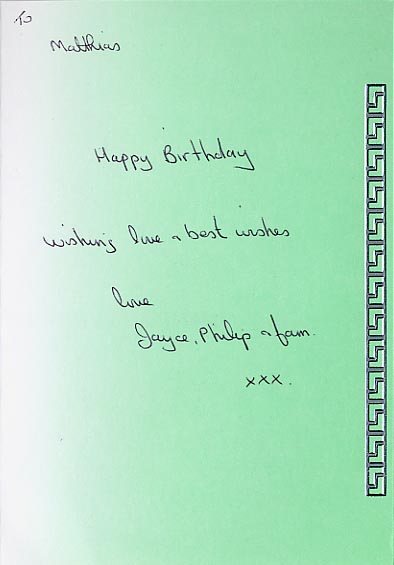 To
Matthias
Happy Birthday
wishing love & best wishes
love
Jayce, Philip & fam.
xxx.